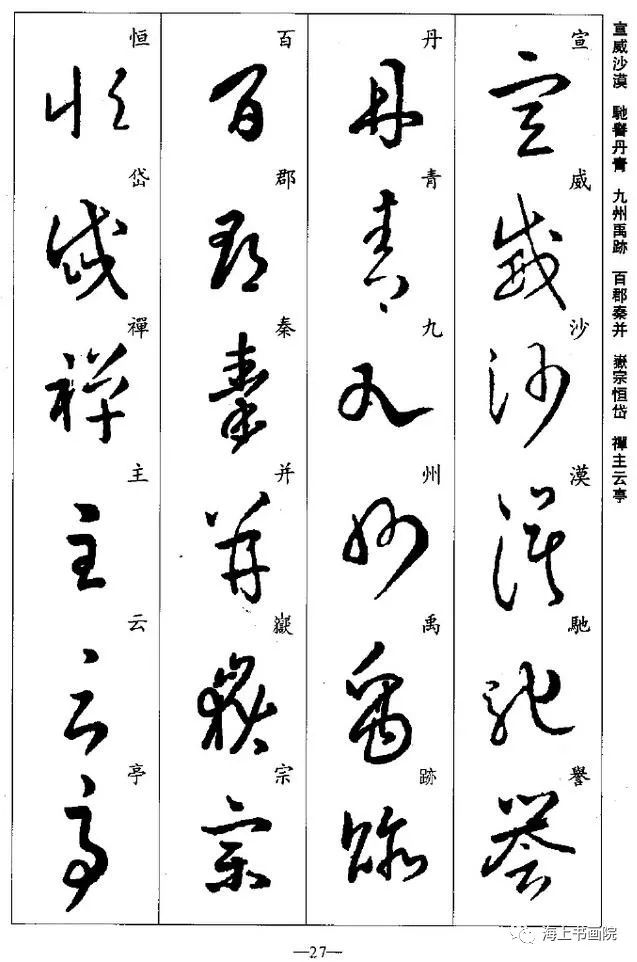 宣威沙漠 馳譽丹青 九州禹跡 百郡秦并 嶽宗恒岱 禪主云亭
宣威沙漠馳譽
丹青九州禹跡
百郡秦并嶽宗
恒岱禪主云亭
—27—
海上书画院